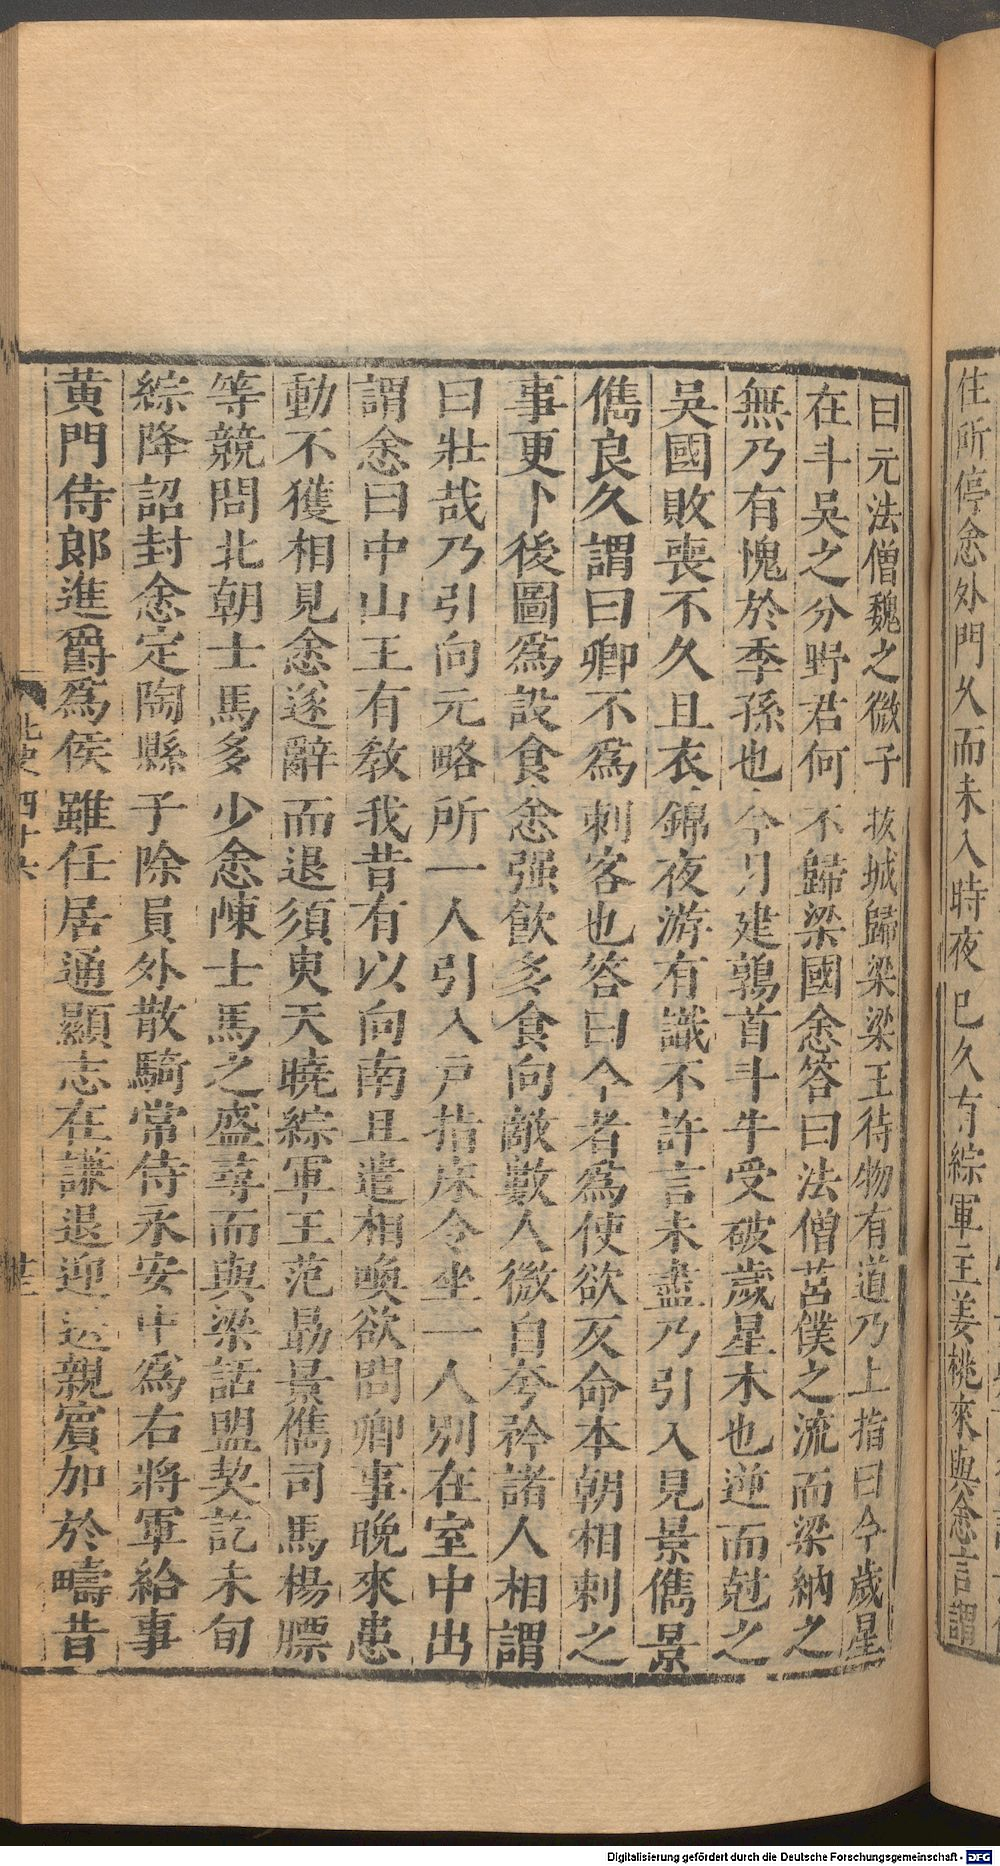 住所停悆外門久而未入時夜已久有綜軍主姜桃來與悆言謂
曰元法僧魏之微子拔城歸梁梁王待物有道乃上指曰今歲星
在斗吳之分野君何不歸梁國悆答曰法僧莒僕之流而梁納之
無乃有愧於季孫也今月建鶉首斗牛受破歲星木也逆而尅之
吳國敗喪不久且衣錦夜游有識不許言未盡乃引入見景儁景
儁良久謂曰卿不爲刺客也答曰今者爲使欲反命本朝相刺之
事更卜後圖爲設食悆强飲多食向敵數人微自夸矜諸人相謂
曰壯哉乃引向元略所一人引入戶指床令坐一人別在室中出
謂悆曰中山王有教我昔有以向南且遣相喚欲問卿事晚來患
動不獲相見悆遂辭而退須臾天曉綜軍主范勗景儁司馬楊瞟
等競問北朝士馬多少悆陳士馬之盛尋而與梁話盟契訖未旬
綜降詔封悆定陶縣子除員外散騎常侍永安中爲右將軍給事
黄門侍郎進爵爲侯雖任居通顯志在謙退迎送親賓加於疇昔
北史 四十六
廿二
Digitalisierung gefördert durch die Deutsche Forschungsgemeinschaft - DFG